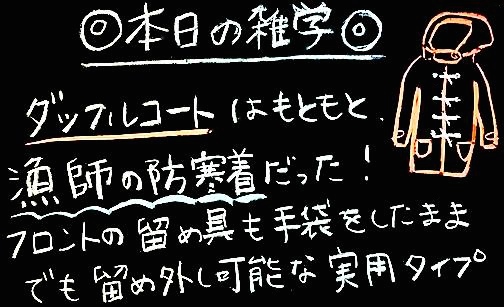 ◎本日の雑学◎
ダッフルコートはもともと、
漁師の防寒着だった!
フロントの留め具も手袋をしたまま
でも留め外し可能な実用タイプ